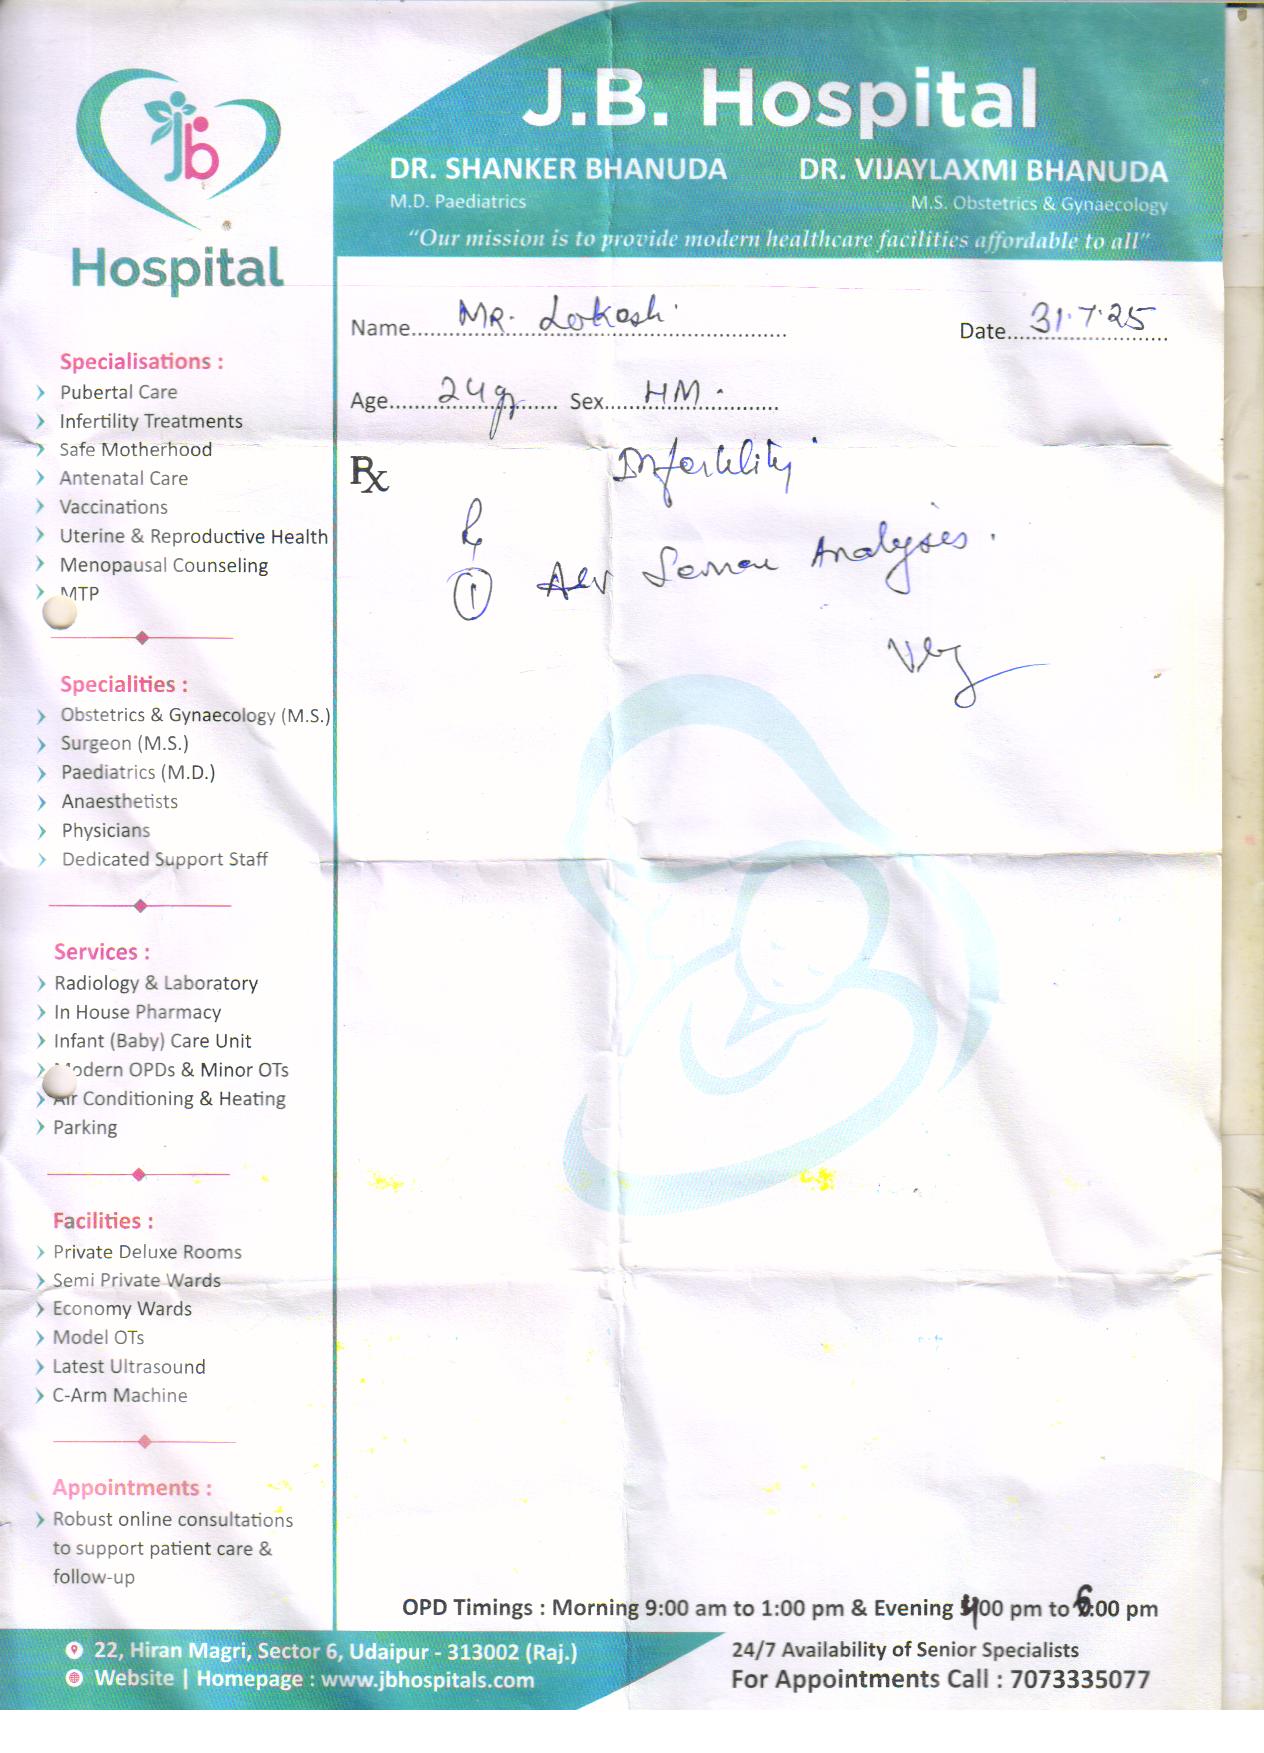 jb
Hospital
J.B. Hospital
DR. SHANKER BHANUDA
M.D. Paediatrics
DR. VIJAYLAXMI BHANUDA
M.S. Obstetrics & Gynaecology
“Our mission is to provide modern healthcare facilities affordable to all”
Name MR. Lokesh
Date 31.7.25
Age 24 yr Sex HM.
Rx
Infertility
①  Semen Analysis.
Specialisations :
Pubertal Care
Infertility Treatments
Safe Motherhood
Antenatal Care
Vaccinations
Uterine & Reproductive Health
Menopausal Counseling
MTP
Specialities :
Obstetrics & Gynaecology (M.S.)
Surgeon (M.S.)
Paediatrics (M.D.)
Anaesthetists
Physicians
Dedicated Support Staff
Services :
Radiology & Laboratory
In House Pharmacy
Infant (Baby) Care Unit
Modern OPDs & Minor OTs
Air Conditioning & Heating
Parking
Facilities :
Private Deluxe Rooms
Semi Private Wards
Economy Wards
Model OTs
Latest Ultrasound
C-Arm Machine
Appointments :
Robust online consultations
to support patient care &
follow-up
OPD Timings : Morning 9:00 am to 1:00 pm & Evening 4:00 pm to 6:00 pm
22, Hiran Magri, Sector 6, Udaipur - 313002 (Raj.)
Website | Homepage : www.jbhospitals.com
24/7 Availability of Senior Specialists
For Appointments Call : 7073335077